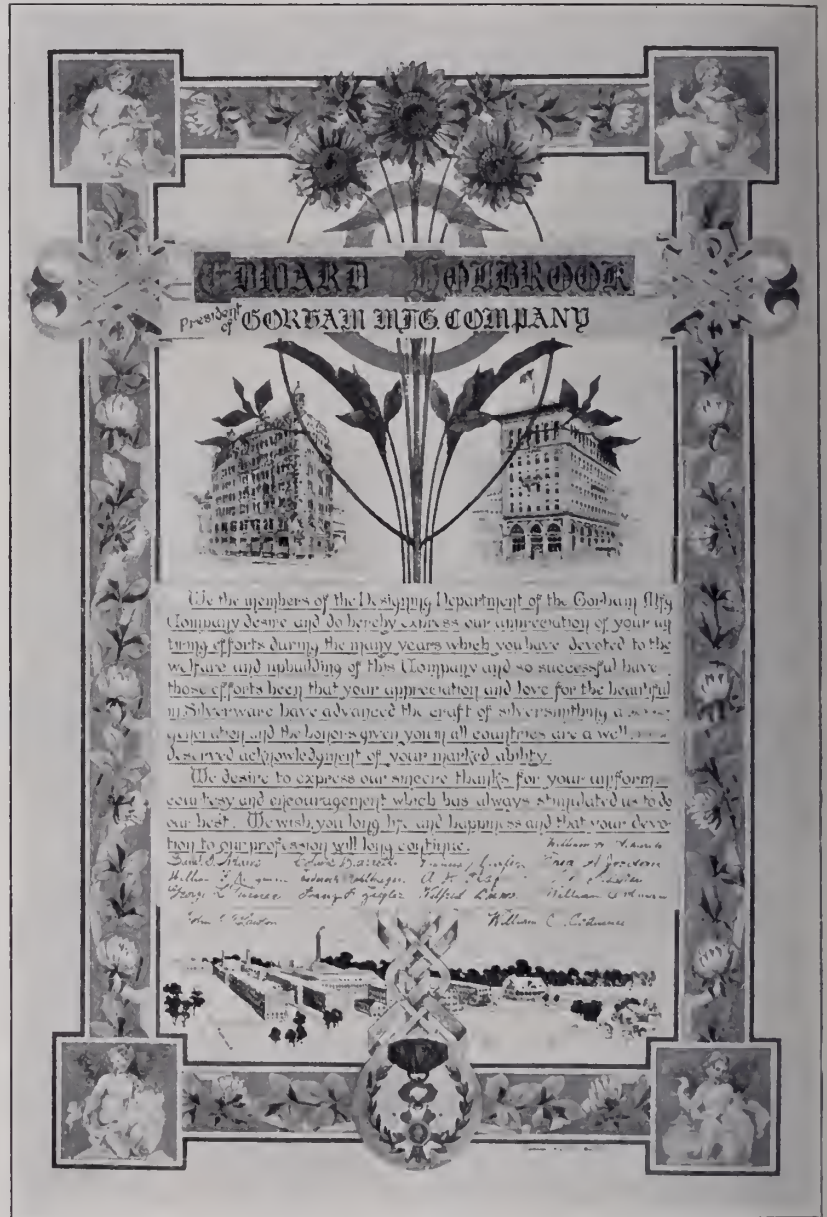 EDWARD HOLBROOK
President of GORHAM MFG. COMPANY
We the members of the Designing Department of the Gorham Mfg
Company desire and do hereby express our appreciation of your un
tiring efforts during the many years which you have devoted to the
welfare and upbuilding of this Company and so successful have
those efforts been that your appreciation and love for the beautiful
in Silverware have advanced the craft of silversmithing a
generation and the honors given you in all countries are a well
deserved acknowledgment of your marked ability.
We desire to express our sincere thanks for your uniform
courtesy and encouragement which has always stimulated us to do
our best. We wish you long life and happiness and that your devo-
tion to our profession will long continue.
William
George Franz F. Ziegler Wilfred William
John William C. Codman